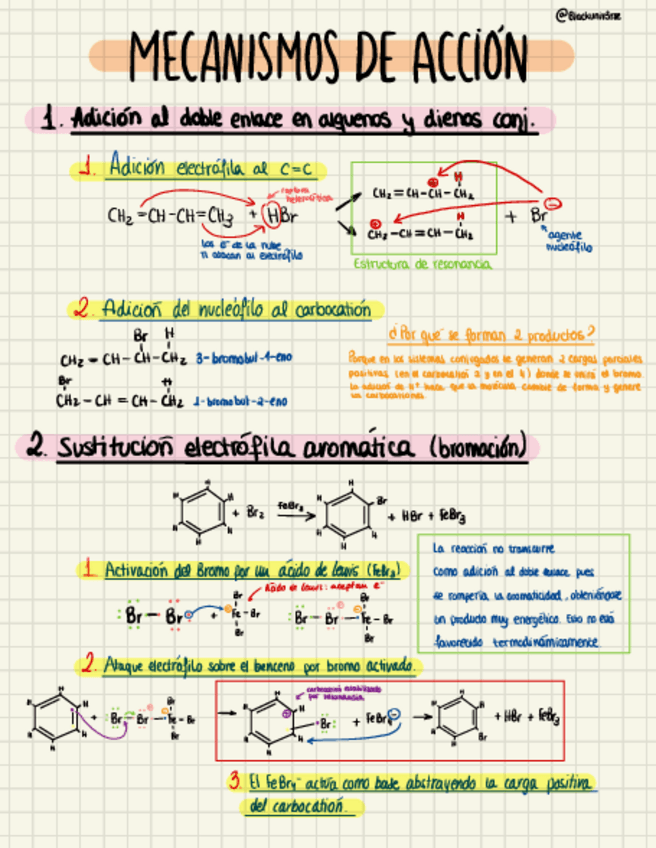 MECANISMOS DE ACCIÓN
1. Adición al doble enlace en alquenos y dienos conj.
1. Adición electrófila al C=C
ruptura heterolítica
CH₂=CH-CH=CH₃ + HBr
los e⁻ de la nube
π atacan al electrófilo
H
CH₂=CH-CH-CH₂
H
CH₂-CH=CH-CH₂
+ Br
agente
nucleófilo
Estructura de resonancia
2. Adición del nucleófilo al carbocatión
Br H
CH₂=CH-CH-CH₂ 3-bromobut-1-eno
Br H
CH₂-CH=CH-CH₂ 1-bromobut-2-eno
¿Por qué se forman 2 productos?
Porque en los sistemas conjugados se generan 2 cargas parciales
positivas (en el carbocatión 2 y en el 4) donde se unirá el bromo.
La adición de H⁺ hace que la molécula cambie de forma y genere
un carbocatión
2. Sustitución electrófila aromática (bromación)
+ Br₂ FeBr₃ Br + HBr + FeBr₃
La reacción no transcurre
como adición al doble enlace pues
se rompería la aromaticidad, obteniéndose
un producto muy energético. Esto no está
favorecido termodinámicamente.
1. Activación del Bromo por un ácido de Lewis (FeBr₃)
Ácido de Lewis: aceptan e⁻
Br-Br + Br Fe-Br Br
Br-Br-Fe-Br Br Br
2. Ataque electrófilo sobre el benceno por bromo activado.
carbocatión estabilizado
por resonancia
+ Br-Br-Fe-Br Br Br
Br + FeBr₄ Br + HBr + FeBr₃
3. El FeBr₄⁻ actúa como base abstrayendo la carga positiva
del carbocatión.